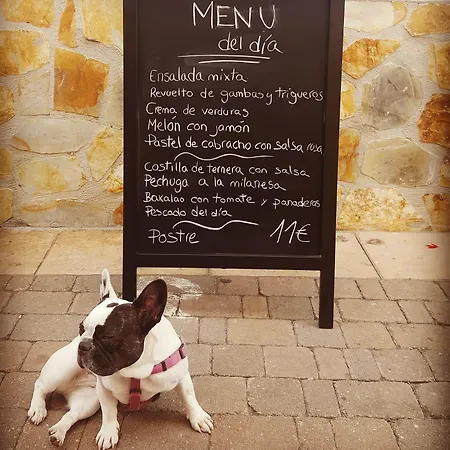 MENU
del día
Ensalada mixta
Revuelto de gambas y trigueros
Crema de verduras
Melón con jamón
Pastel de cabracho con salsa rosa
Costilla de ternera con salsa
Pechuga a la milanesa
Baxalao con tomate y panaderas
Pescado del día
Postre 11€